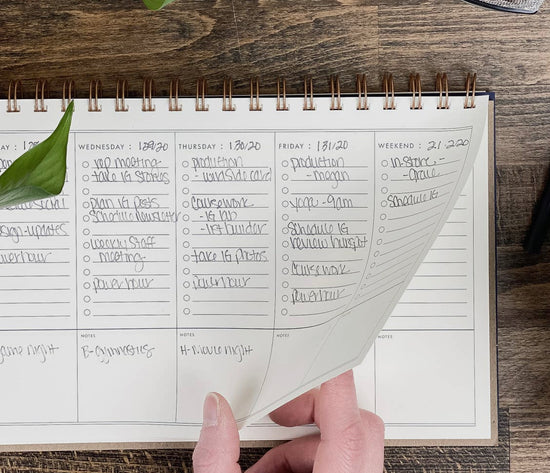 AY :
- updates
power hour
game night
WEDNESDAY : 1/29/20
rep meeting -
take IG stories
plan IG posts
Schedule Newsletter
weekly staff
meeting -
power hour
NOTES
B-gymnastics
THURSDAY : 1/30/20
production
coursework
- IG lab
- list builder
take IG photos
power hour
NOTES
H-Movie night
FRIDAY : 1/31/20
production
- megan
yoga - 9am
Schedule IG
review hubspot
coursework
power hour
NOTES
WEEKEND : 2.1-2.2.20
in-store -
- Grace
schedule IG
NOTES